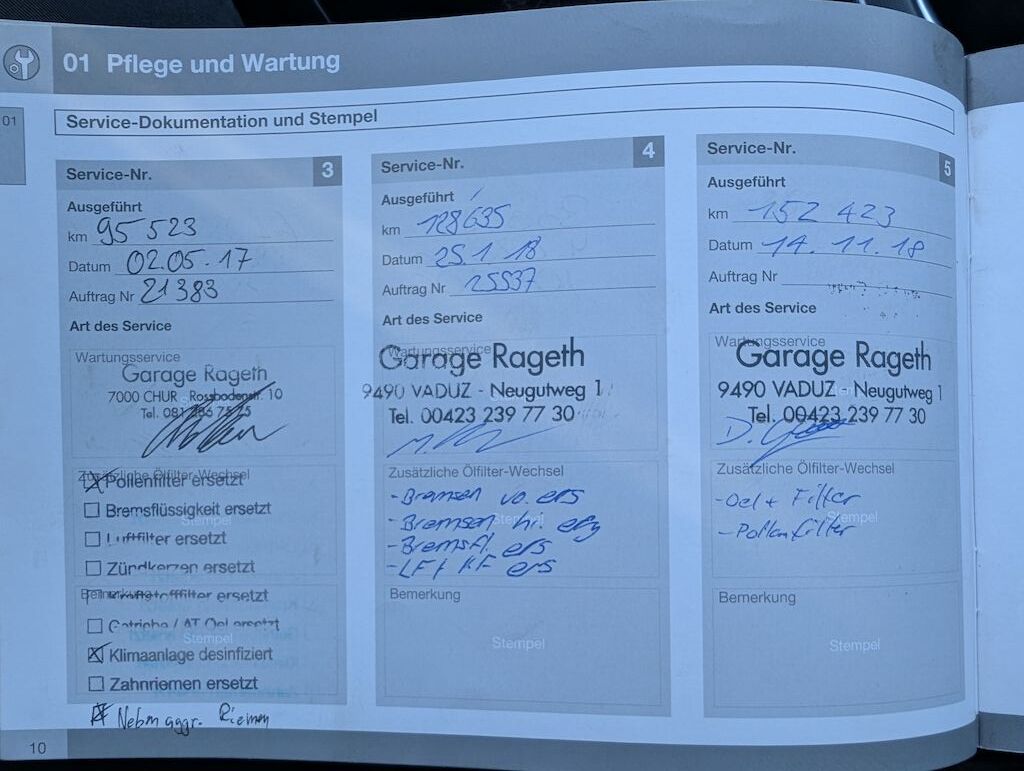 01 Pflege und Wartung
01
Service-Dokumentation und Stempel
Service-Nr. 3
Ausgeführt
km 95 523
Datum 02.05.17
Auftrag Nr 21383
Art des Service
Wartungsservice
Garage Rageth
7000 CHUR Rossbodenstr. 10
Tel. 081
Zusätzliche Ölfilter-Wechsel
Pollenfilter ersetzt
Bremsflüssigkeit ersetzt
Stempel
Luftfilter ersetzt
Zündkerzen ersetzt
Bemerkung
Kraftstofffilter ersetzt
Getriebe / AT Oel ersetzt
Stempel
Klimaanlage desinfiziert
Zahnriemen ersetzt
Nebenaggr. Riemen
Service-Nr. 4
Ausgeführt
km 128635
Datum 25.1.18
Auftrag Nr 25537
Art des Service
Wartungsservice
Garage Rageth
9490 VADUZ - Neugutweg 1
Tel. 00423 239 77 30
Zusätzliche Ölfilter-Wechsel
- Bremsen vo. ers
- Bremsen hi. ers
Stempel
- Bremsfl. ers
- LF + KF ers
Bemerkung
Stempel
Service-Nr. 5
Ausgeführt
km 152 423
Datum 14.11.18
Auftrag Nr
Art des Service
Wartungsservice
Garage Rageth
9490 VADUZ - Neugutweg 1
Tel. 00423 239 77 30
Zusätzliche Ölfilter-Wechsel
- Oel + Filter
Stempel
- Pollenfilter
Bemerkung
Stempel
10